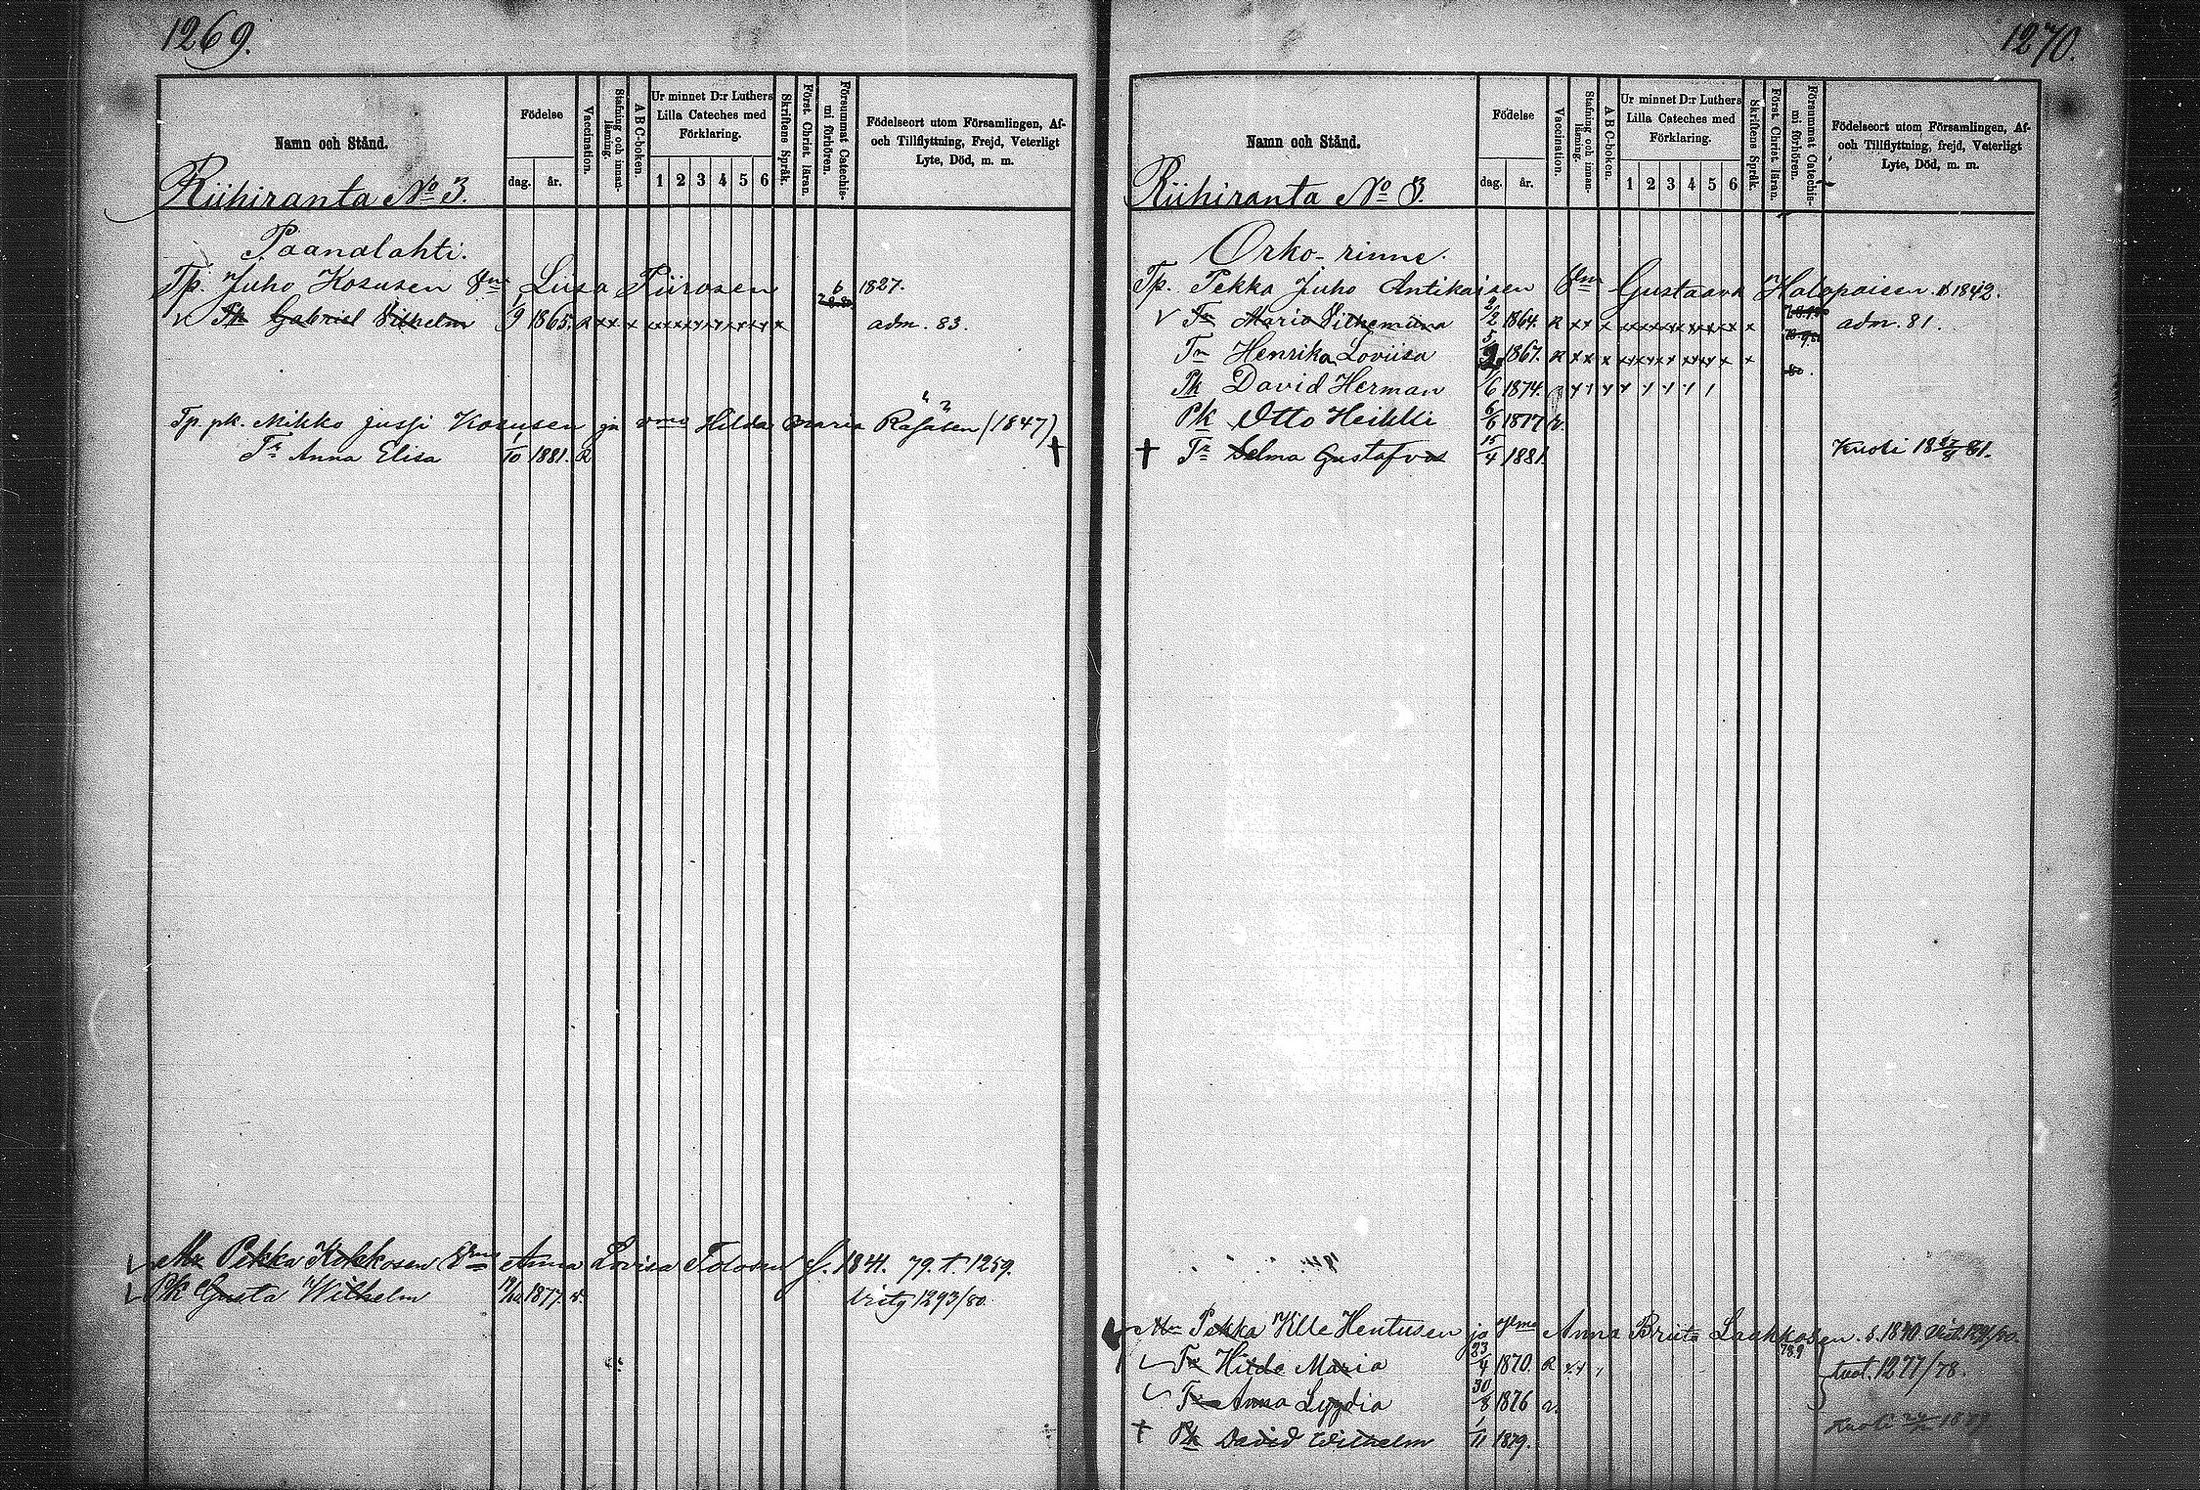 1269.
Namn och Stånd.
Födelse
dag.
år.
Vaccination.
Stafning och innan-läsning.
A B C-boken.
Ur minnet D:r Luthers
Lilla Cateches med
Förklaring.
1 2 3 4 5 6
Skriftens Språk.
Först. Christ. läran.
Försummat Catechis-mi förhören.
Födelseort utom Församlingen, Af-
och Tillflyttning, Frejd, Veterligt
Lyte, Död, m. m.
Riihiranta No 3.
Paanalahti.
Tp. Juho Kosusen Vmo Liisa Piirosen 6 1827.
v Pk Gabriel Vilhelm 1/9 1865. R x x x x x x x x x x x x x adm. 83.
Tp. pk. Mikko jussi Kosusen ja vmo Hilda Maria Räsäsen (1847)
Tr Anna Elisa 1/10 1881. R †
Mr Pekka Kokkosen Vmo Anna Lovisa Tolosen s. 1841. 79. t. 1259.
Pk Gusta Wilhelm 12/12 1877. r. 1293/80.
1270.
Namn och Stånd.
Födelse
dag.
år.
Vaccination.
Stafning och innan-läsning.
A B C-boken.
Ur minnet D:r Luthers
Lilla Cateches med
Förklaring.
1 2 3 4 5 6
Skriftens Språk.
Först. Christ läran.
Försummat Catechis-mi förhören.
Födelseort utom Församlingen, Af-
och Tillflyttning, frejd, Veterligt
Lyte, Död, m. m.
Riihiranta No 3.
Orko-rinne.
Tp. Pekka Juho Antikaisen Vmo Gustaava Halopaisen. s 1842.
v Tr Maria Vilhemiina 2/2 1864. R x x x x x x x x x x x adm. 81.
Tr Henrika Loviisa 1867. R x x x x x x x x x x x
Pk David Herman 1/6 1874.
Pk Otto Heikki 6/6 1877 r.
† Tr Selma Gustafva 15/4 1881. Kuoli 18 27/8 81.
Mr Pekka Ville Hentusen ja Vmo Anna Briita Laakkosen. s. 1840.
Tr Hilda Maria 23/4 1870. R 78.9 tuot. 1277/78.
Tr Anna Lyydia 30/8 1876 r.
† Pk David Wilhelm 1/11 1879. Kuoli